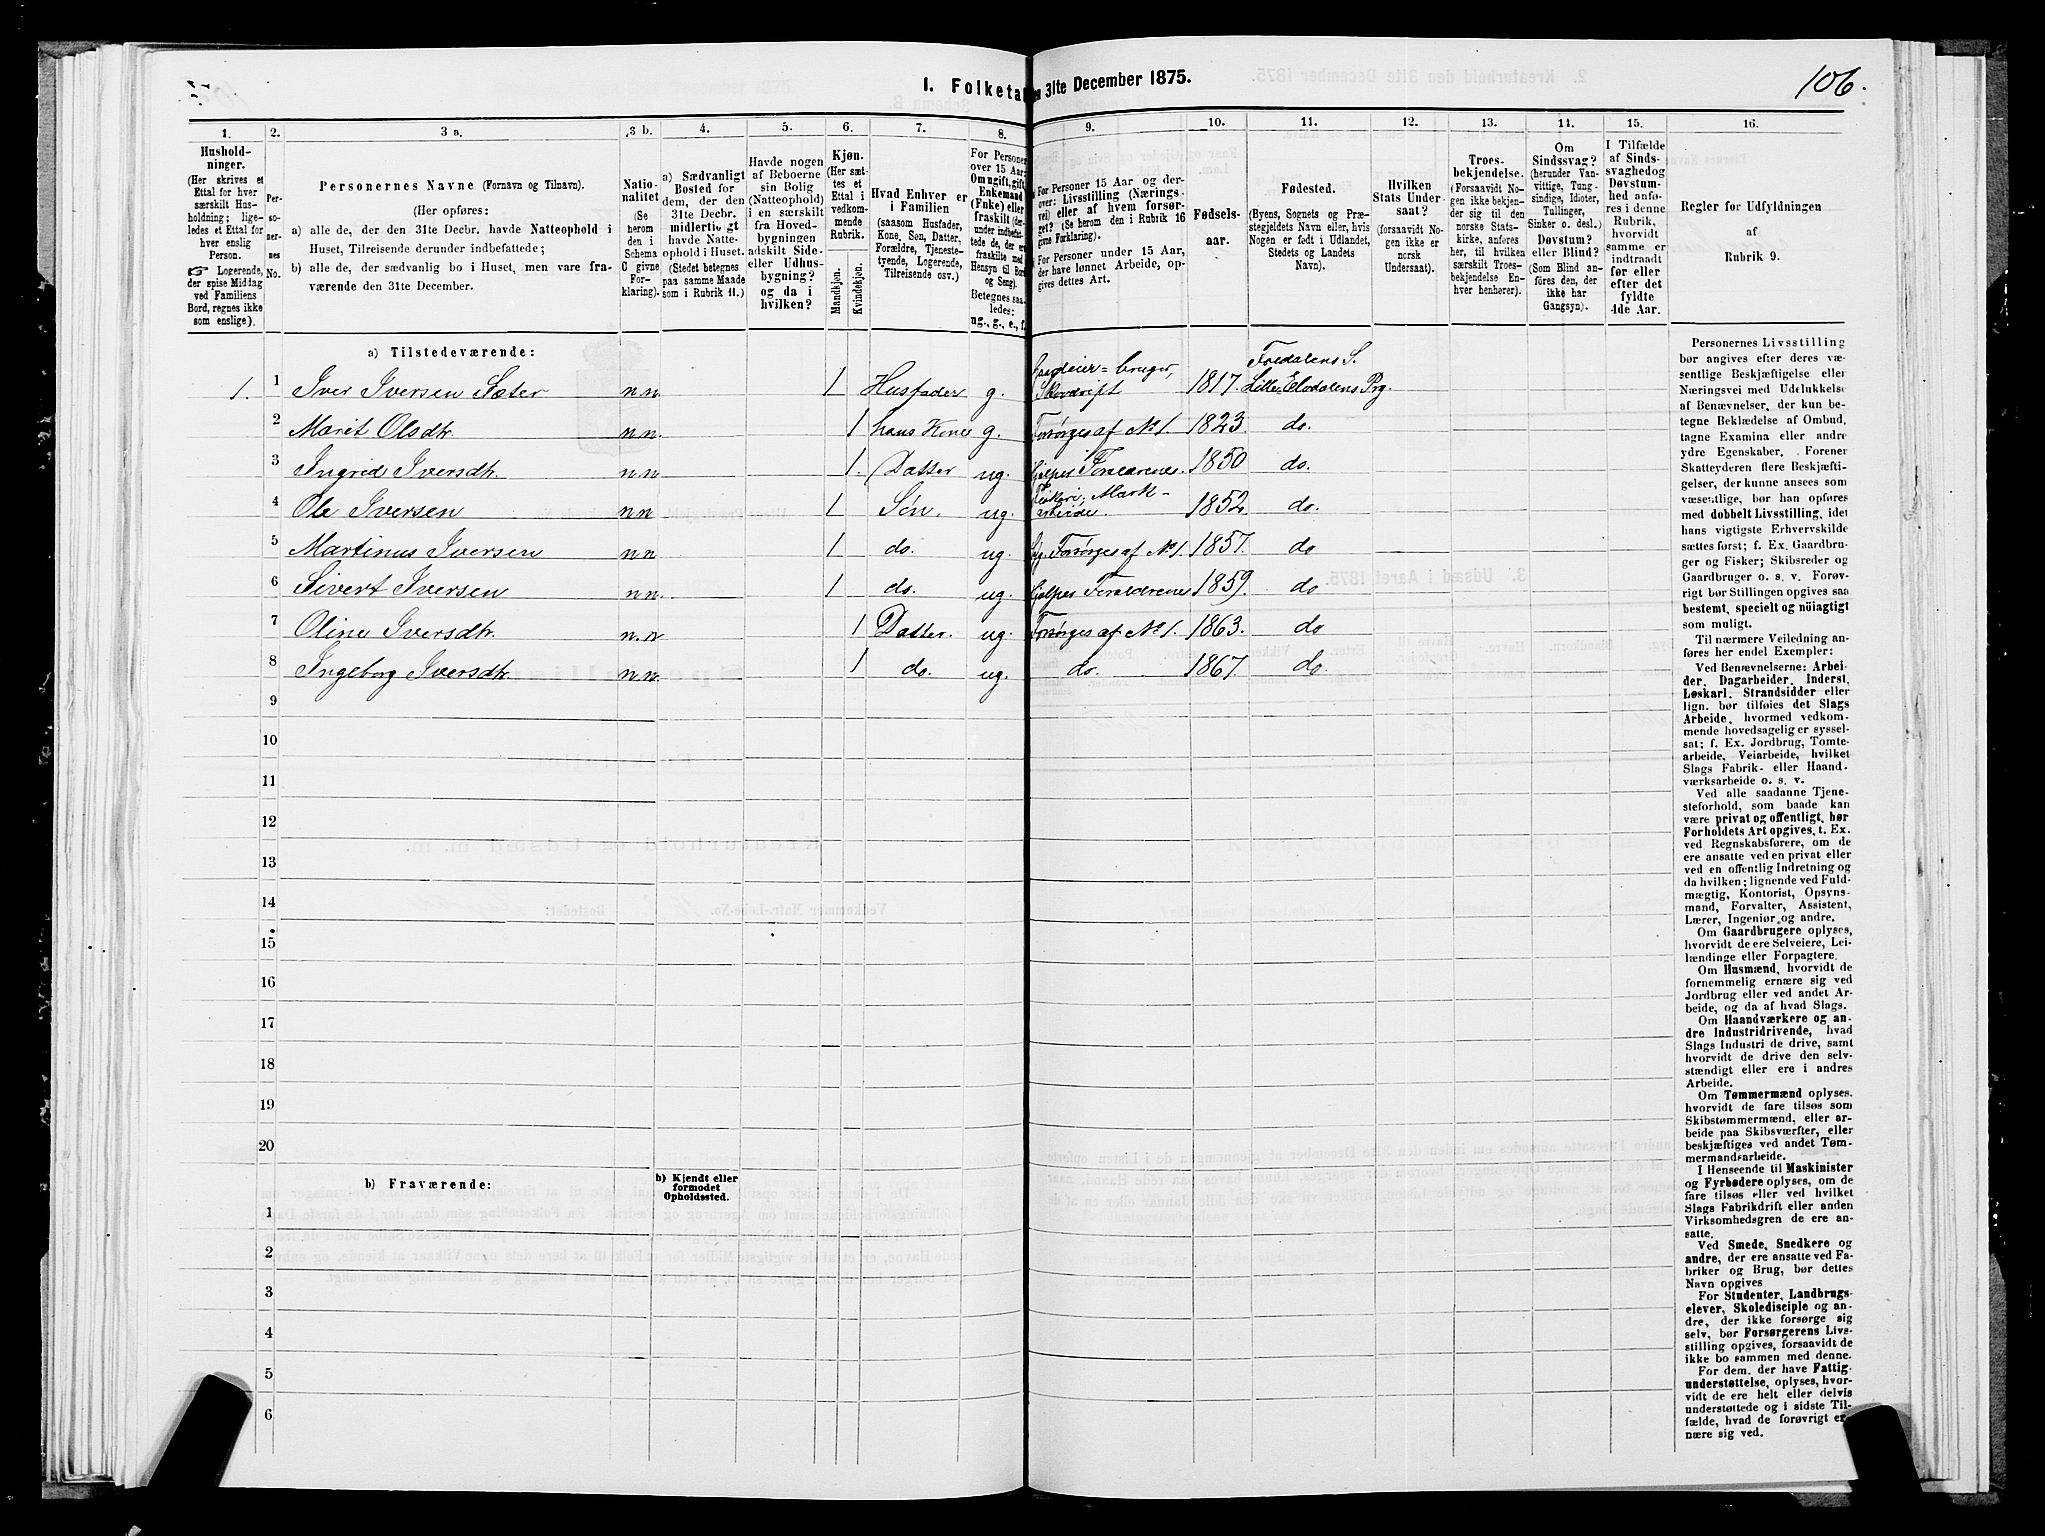 1. Folketal den 31te December 1875.
106.
1.
Hushold-
ninger.
(Her skrives et
Ettal for hver
særskilt Hus-
holdning; lige-
ledes et Ettal for
hver enslig
Person.
☞ Logerende,
der spise Middag
ved Familiens
Bord, regnes ikke
som enslige).
2.
Per-
so-
ner-
nes
No.
3 a.
Personernes Navne (Fornavn og Tilnavn).
(Her opføres:
a) alle de, der den 31te Decbr. havde Natteophold i
Huset, Tilreisende derunder indbefattede;
b) alle de, der sædvanlig bo i Huset, men vare fra-
værende den 31te December.
3 b.
Natio-
nalitet
(Se
herom
den i
Schema
C givne
For-
klaring).
4.
a) Sædvanligt
Bosted for
dem, der den
31te Decbr.
midlertidigt
havde Natte-
ophold i Huset.
(Stedet betegnes
paa samme Maade
som i Rubrik 11.)
5.
Havde nogen
af Beboerne
sin Bolig
(Natteophold)
i en særskilt
fra Hoved-
bygningen
adskilt Side-
eller Udhus-
bygning?
og da i
hvilken?
6.
Kjøn.
(Her sæt-
tes et
Ettal i
vedkom-
mende
Rubrik.
Mandkjøn.
Kvindekjøn.
7.
Hvad Enhver er
i Familien
(saasom Husfader,
Kone, Søn, Datter,
Forældre, Tjeneste-
tyende, Logerende,
Tilreisende osv.)
8.
For Personer
over 15 Aar:
Om ugift, gift,
Enkemand
(Enke) eller
fraskilt
Betegnes saa-
ledes:
ug., g., e., f.
9.
For Personer 15 Aar og der-
over: Livsstilling (Nærings-
vei) eller af hvem forsør-
get? (Se herom den i Rubrik 16
givne Forklaring).
For Personer under 15 Aar,
der have lønnet Arbeide, op-
gives dettes Art.
10.
Fødsels-
aar.
11.
Fødested.
(Byens, Sognets og Præ-
stegjeldets Navn eller, hvis
Nogen er født i Udlandet,
Stedets og Landets
Navn).
12.
Hvilken
Stats Under-
saat?
(forsaavidt No-
gen ikke er
norsk
Undersaat).
13.
Troes-
bekjendelse.
(Forsaavidt No-
gen ikke bekjen-
der sig til den
norske Stats-
kirke, anføres
her, til hvilken
særskilt Troes-
bekjendelse En-
hver henhører).
14.
Om
Sindssvag?
(herunder Van-
vittige, Tung-
sindige, Idioter,
Tullinger,
Sinker o. desl.)
Døvstum?
eller Blind?
(Som Blind an-
føres den, der
ikke har
Gangsyn).
15.
I Tilfælde
af Sinds-
svaghed og
Døvstum-
hed anfø-
res i denne
Rubrik,
hvorvidt
samme er
indtraadt
før eller
efter det
fyldte
4de Aar.
16.
Regler for Udfyldningen
af
Rubrik 9.
a) Tilstedeværende:
1. 1 Iver Iversen Sæter n.n. 1 Husfader g. Gaardeier = bruger, Skovdrift 1817. Foldalens S. Lille Elvdalens Prg.
2 Marit Olsdtr. n.n. 1 hans Kone g. Forsørges af No 1. 1823 do.
3 Ingrid Iversdtr. n.n 1. Datter ug. Hjelper Forældrene. 1850 do.
4 Ole Iversen n.n 1 Søn. ug. Mark- arbeide. 1852. do.
5 Martinus Iversen n.n 1 do. ug. Forsørges af No 1. 1857. do
6 Sivert Iversen n.n. 1 do. ug. Hjelper Forældrene 1859. do
7 Oline Iversdtr. n.n 1 Datter. ug. Forsørges af No 1. 1863. do
8 Ingeborg Iversdtr. n.n. 1 do. ug. do. 1867. do.
9
10
11
12
13
14
15
16
17
18
19
20
b) Fraværende:
b) Kjendt eller
formodet
Opholdssted.
1
2
3
4
5
6
Personernes Livsstilling
bør angives efter deres væ-
sentlige Beskjæftigelse eller
Næringsvei med Udelukkelse
af Benævnelser, der kun be-
tegne Beklædelse af Ombud,
tagne Examina eller andre
ydre Egenskaber. Forener
Skatteyderen flere Beskjæfti-
gelser, der kunne ansees som
væsentlige, bør han opføres
med dobbelt Livsstilling, idet
hans vigtigste Erhvervskilde
sættes først; f. Ex. Gaardbru-
ger og Fisker; Skibsreder og
Gaardbruger o. s. v. Forøv-
rigt bør Stillingen opgives saa
bestemt, specielt og nöiagtigt
som muligt.
Til nærmere Veiledning an-
føres her endel Exempler:
Ved Benævnelserne: Arbei-
der, Dagarbeider, Inderst,
Løskarl, Strandsidder eller
lign. bør tilføies det Slags
Arbeide, hvormed vedkom-
mende hovedsagelig er syssel-
sat; f. Ex. Jordbrug, Tomte-
arbeide, Veiarbeide, hvilket
Slags Fabrik- eller Haand-
værksarbeide o. s. v.
Ved alle saadanne Tjene-
steforhold, som baade kan
være privat og offentligt, bør
Forholdets Art opgives, t. Ex.
ved Regnskabsførere, om de
ere ansatte ved en privat eller
ved en offentlig Indretning og
da hvilken; lignende ved Fuld-
mægtig, Kontorist, Opsyns-
mand, Forvalter, Assistent,
Lærer, Ingeniør og andre.
Om Gaardbrugere oplyses,
hvorvidt de ere Selveiere, Lei-
lændinge eller Forpagtere.
Om Husmænd, hvorvidt de
fornemmelig ernære sig ved
Jordbrug eller ved andet Ar-
beide, og da af hvad Slags.
Om Haandværkere og an-
dre Industridrivende, hvad
Slags Industri de drive, samt
hvorvidt de drive den selv-
stændigt eller ere i andres
Arbeide.
Om Tømmermænd oplyses,
hvorvidt de fare tilsøs som
Skibstømmermænd, eller ar-
beide paa Skibsværfter, eller
beskjæftiges ved andet Tøm-
mermandsarbeide.
I Henseende til Maskinister
og Fyrbødere oplyses, om de
fare tilsøs eller ved hvilket
Slags Fabrikdrift eller anden
Virksomhedsgren de ere an-
satte.
Ved Smede, Snedkere og
andre, der ere ansatte ved Fa-
briker og Brug, bør dettes
Navn opgives
For Studenter, Landbrugs-
elever, Skoledisciple og an-
dre, der ikke forsørge sig
selv, bør Forsørgerens Livs-
stilling opgives, forsaavidt de
ikke bo sammen med denne.
For dem, der have Fattig-
understøttelse, oplyses, hvor-
vidt de ere helt eller delvis
understøttede og i sidste Til-
fælde, hvad de forøvrigt er-
nære sig ved.